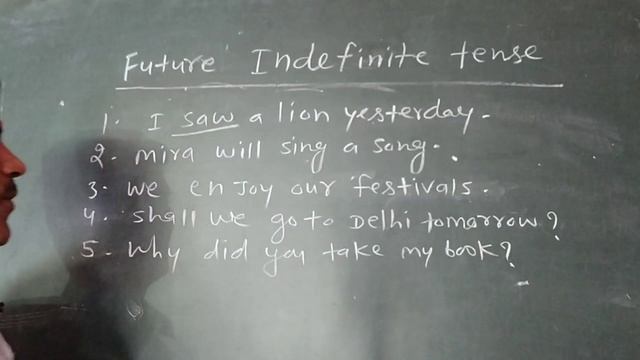 Future Indefinite tense
1. I saw a lion yesterday.
2. mira will sing a song.
3. we enjoy our festivals.
4. shall we go to Delhi tomorrow?
5. Why did you take my book?